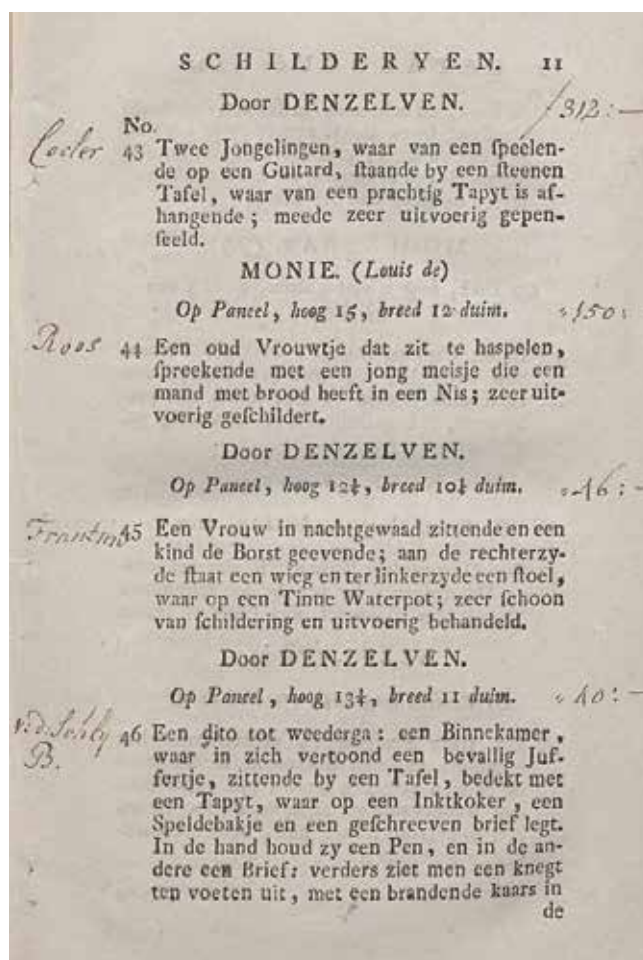 SCHILDERYEN. 11
Door DENZELVEN. 312:—
No.
43 Twee Jongelingen, waar van een ſpeelen-
de op een Guitard, ſtaande by een ſteenen
Tafel, waar van een prachtig Tapyt is af-
hangende; meede zeer uitvoerig gepen-
ſeeld.
MONIE. (Louis de)
Op Paneel, hoog 15, breed 12 duim. 150:
Roos 44 Een oud Vrouwtje dat zit te haspelen,
ſpreekende met een jong meisje die een
mand met brood heeft in een Nis; zeer uit-
voerig geſchildert.
Door DENZELVEN.
Op Paneel, hoog 12¼, breed 10¼ duim. 46:-
45 Een Vrouw in nachtgewaad zittende en een
kind de Borst geevende; aan de rechterzy-
de ſtaat een wieg en ter linkerzyde een ſtoel,
waar op een Tinne Waterpot; zeer ſchoon
van ſchildering en uitvoerig behandeld.
Door DENZELVEN.
Op Paneel, hoog 13¼, breed 11 duim. 40:—
46 Een dito tot weederga: een Binnekamer,
B. waar in zich vertoond een bevallig Juf-
fertje, zittende by een Tafel, bedekt met
een Tapyt, waar op een Inktkoker, een
Speldebakje en een geſchreeven brief legt.
In de hand houd zy een Pen, en in de an-
dere een Brief: verders ziet men een knegt
ten voeten uit, met een brandende kaars in
de